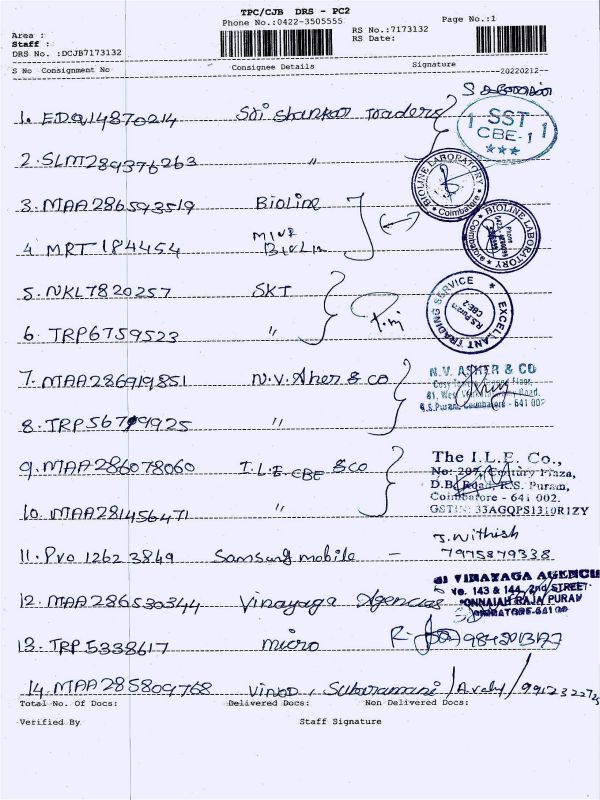 TPC/CJB DRS - PC2
Phone No.:0422-3505555
Page No.:1
Area :
Staff :
DRS No. :DCJB7173132
RS No.:7173132
RS Date:
S No Consignment No Consignee Details Signature
20220212
1. EDQ14870214 Sri Shankar Traders
SST
CBE-1
2. SLM289376263 "
BIOLINE LABORATORY
Coimbatore
3. MAA286593519 Bioline
BIOLINE LABORATORY
Coimbatore
4 MRT 184454
5. NKL7820257 SKT
EXCELLANT TRADING SERVICE
R.S.Puram
CBE-2
6. TRP6759523 "
7. MAA286919851 N.V. Asher & co
N.V. ASHER & CO
41, West
R.S.Puram, Coimbatore - 641 002
8. TRP56799925 "
9. MAA286078060 I.L.E. CBE & co
The I.L.E. Co.,
No: 207, Century Plaza,
D.B. Road, R.S. Puram,
Coimbatore - 641 002.
GSTIN: 33AGQPS1310R1ZY
10. MAA281456471
11. Pvo 1262 3849 Samsung mobile -
J. Nithish
7975879338
12. MAA286530344 Vinayaga Agencies
VINAYAGA AGENCIE
No. 143 & 144, 2nd STREET
PONNAIAH RAJA PURAM
13. TRP5338617 micro
14. MAA285809768 Vinod, Subramani
Total No. Of Docs: Delivered Docs: Non Delivered Docs:
Verified By Staff Signature